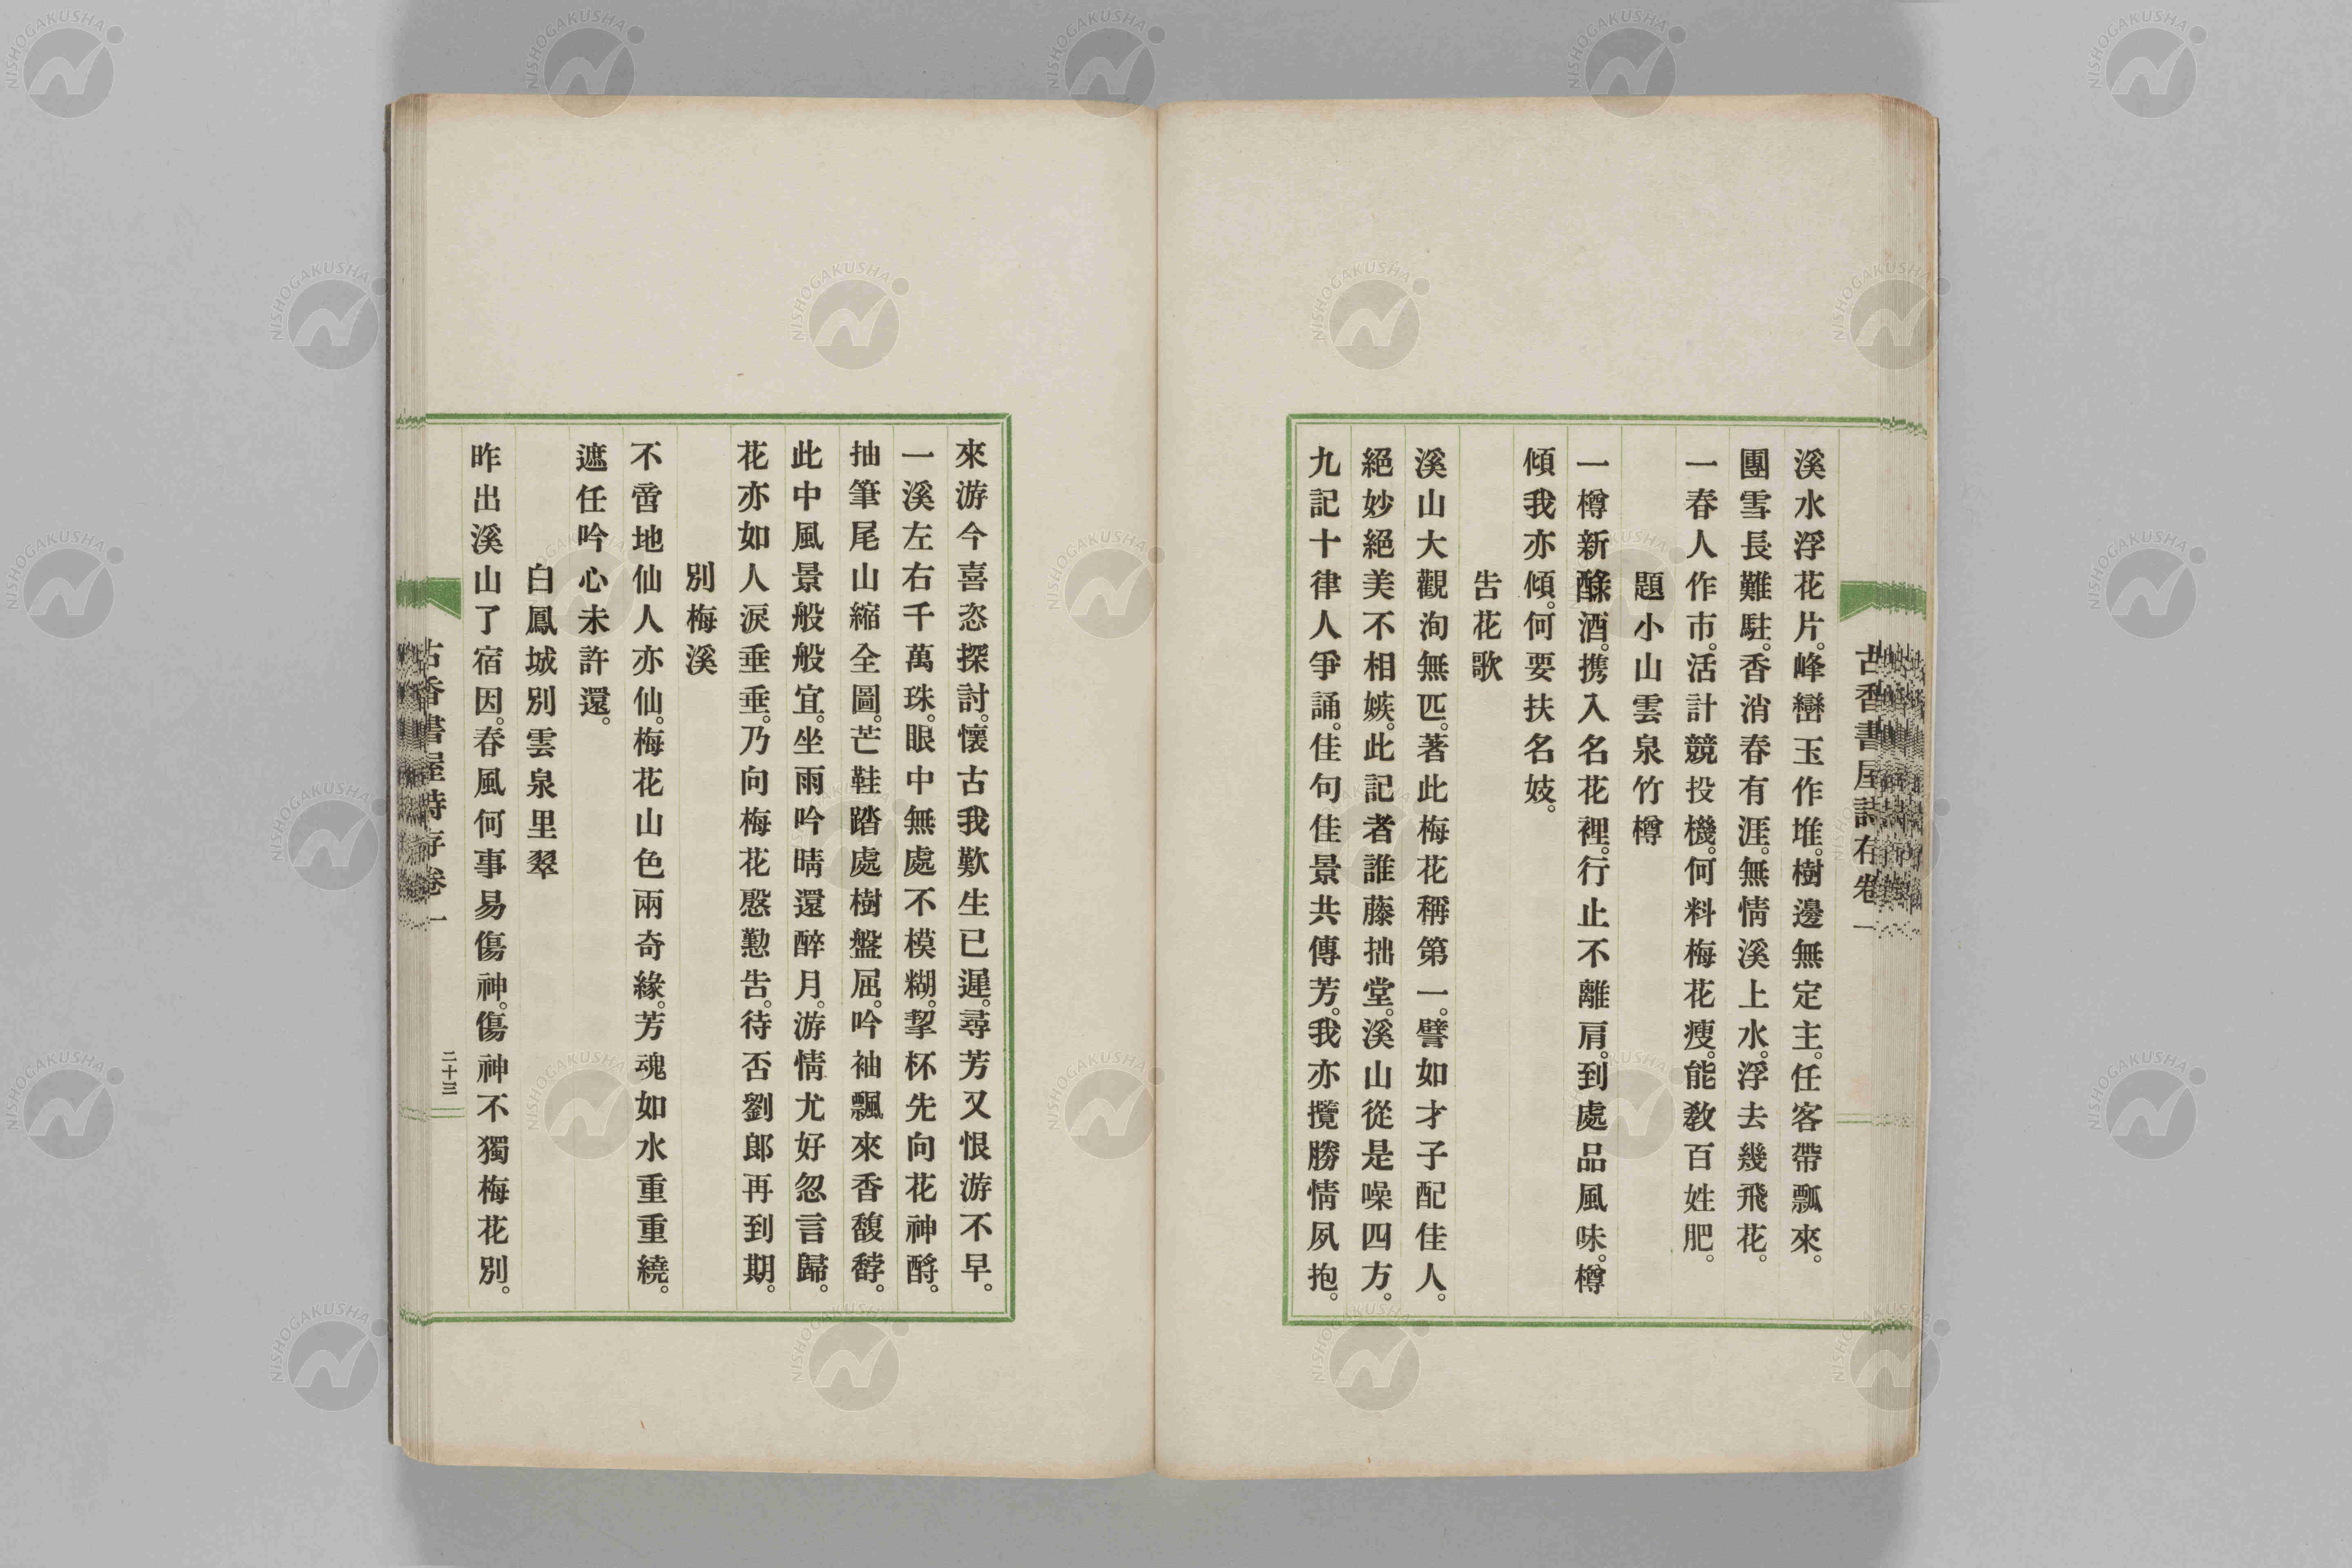 古香書屋詩存卷一
溪水浮花片。峰巒玉作堆。樹邊無定主。任客帶瓢來。
團雪長難駐。香消春有涯。無情溪上水。浮去幾飛花。
一春人作市。活計競投機。何料梅花瘦。能敎百姓肥。
題小山雲泉竹樽
一樽新醁酒。携入名花裡。行止不離肩。到處品風味。樽
傾我亦傾。何要扶名妓。
告花歌
溪山大觀洵無匹。著此梅花稱第一。譬如才子配佳人。
絕妙絕美不相嫉。此記者誰藤拙堂。溪山從是噪四方。
九記十律人爭誦。佳句佳景共傳芳。我亦攬勝情夙抱。
來游今喜恣探討。懷古我歎生已遲。尋芳又恨游不早。
一溪左右千萬珠。眼中無處不模糊。挈杯先向花神酹。
抽筆尾山縮全圖。芒鞋踏處樹盤屈。吟袖飄來香馥馞。
此中風景般般宜。坐雨吟晴還醉月。游情尤好忽言歸。
花亦如人淚垂垂。乃向梅花慇懃告。待否劉郎再到期。
別梅溪
不啻地仙人亦仙。梅花山色兩奇緣。芳魂如水重重繞。
遮任吟心未許還。
白鳳城別雲泉里翠
昨出溪山了宿因。春風何事易傷神。傷神不獨梅花別。
古香書屋詩存卷一
二十三
NISHOGAKUSHA